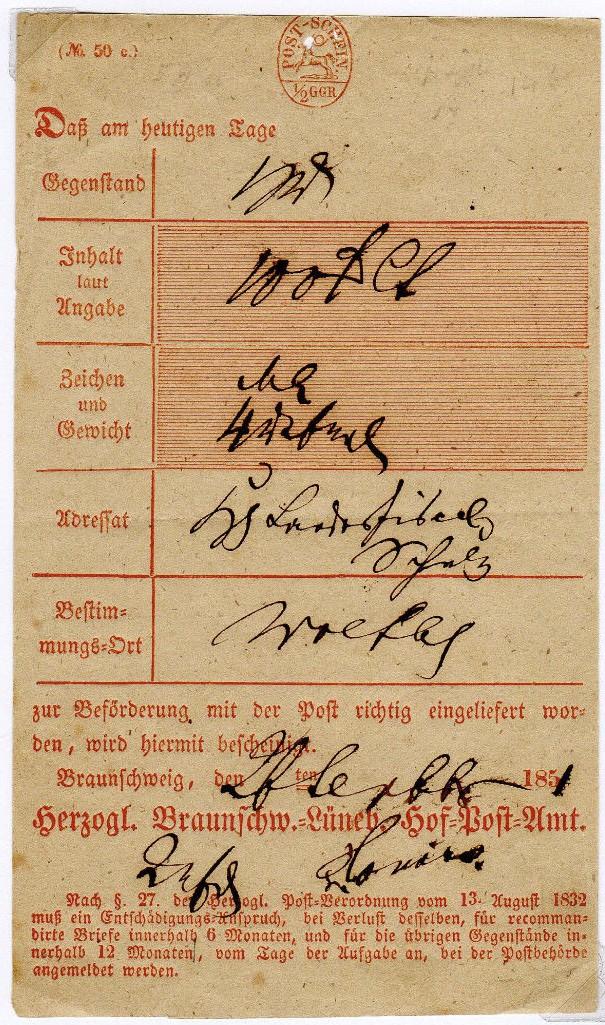 (№. 50 c.)
POST-SCHEIN.
½ GGR
Daß am heutigen Tage
Gegenstand
Inhalt
laut
Angabe
100 Ct
Zeichen
und
Gewicht
4
Adressat
Landesfiscal
Schulz
Bestim-
mungs-Ort
Wolfb
zur Beförderung mit der Post richtig eingeliefert wor-
den, wird hiermit bescheinigt.
Braunschweig, den 26 ten 1851
Herzogl. Braunschw.-Lüneb. Hof-Post-Amt.
Nach §. 27. der Herzogl. Post-Verordnung vom 13. August 1832
muß ein Entschädigungs-Anspruch, bei Verlust desselben, für recomman-
dirte Briefe innerhalb 6 Monaten, und für die übrigen Gegenstände in-
nerhalb 12 Monaten, vom Tage der Aufgabe an, bei der Postbehörde
angemeldet werden.